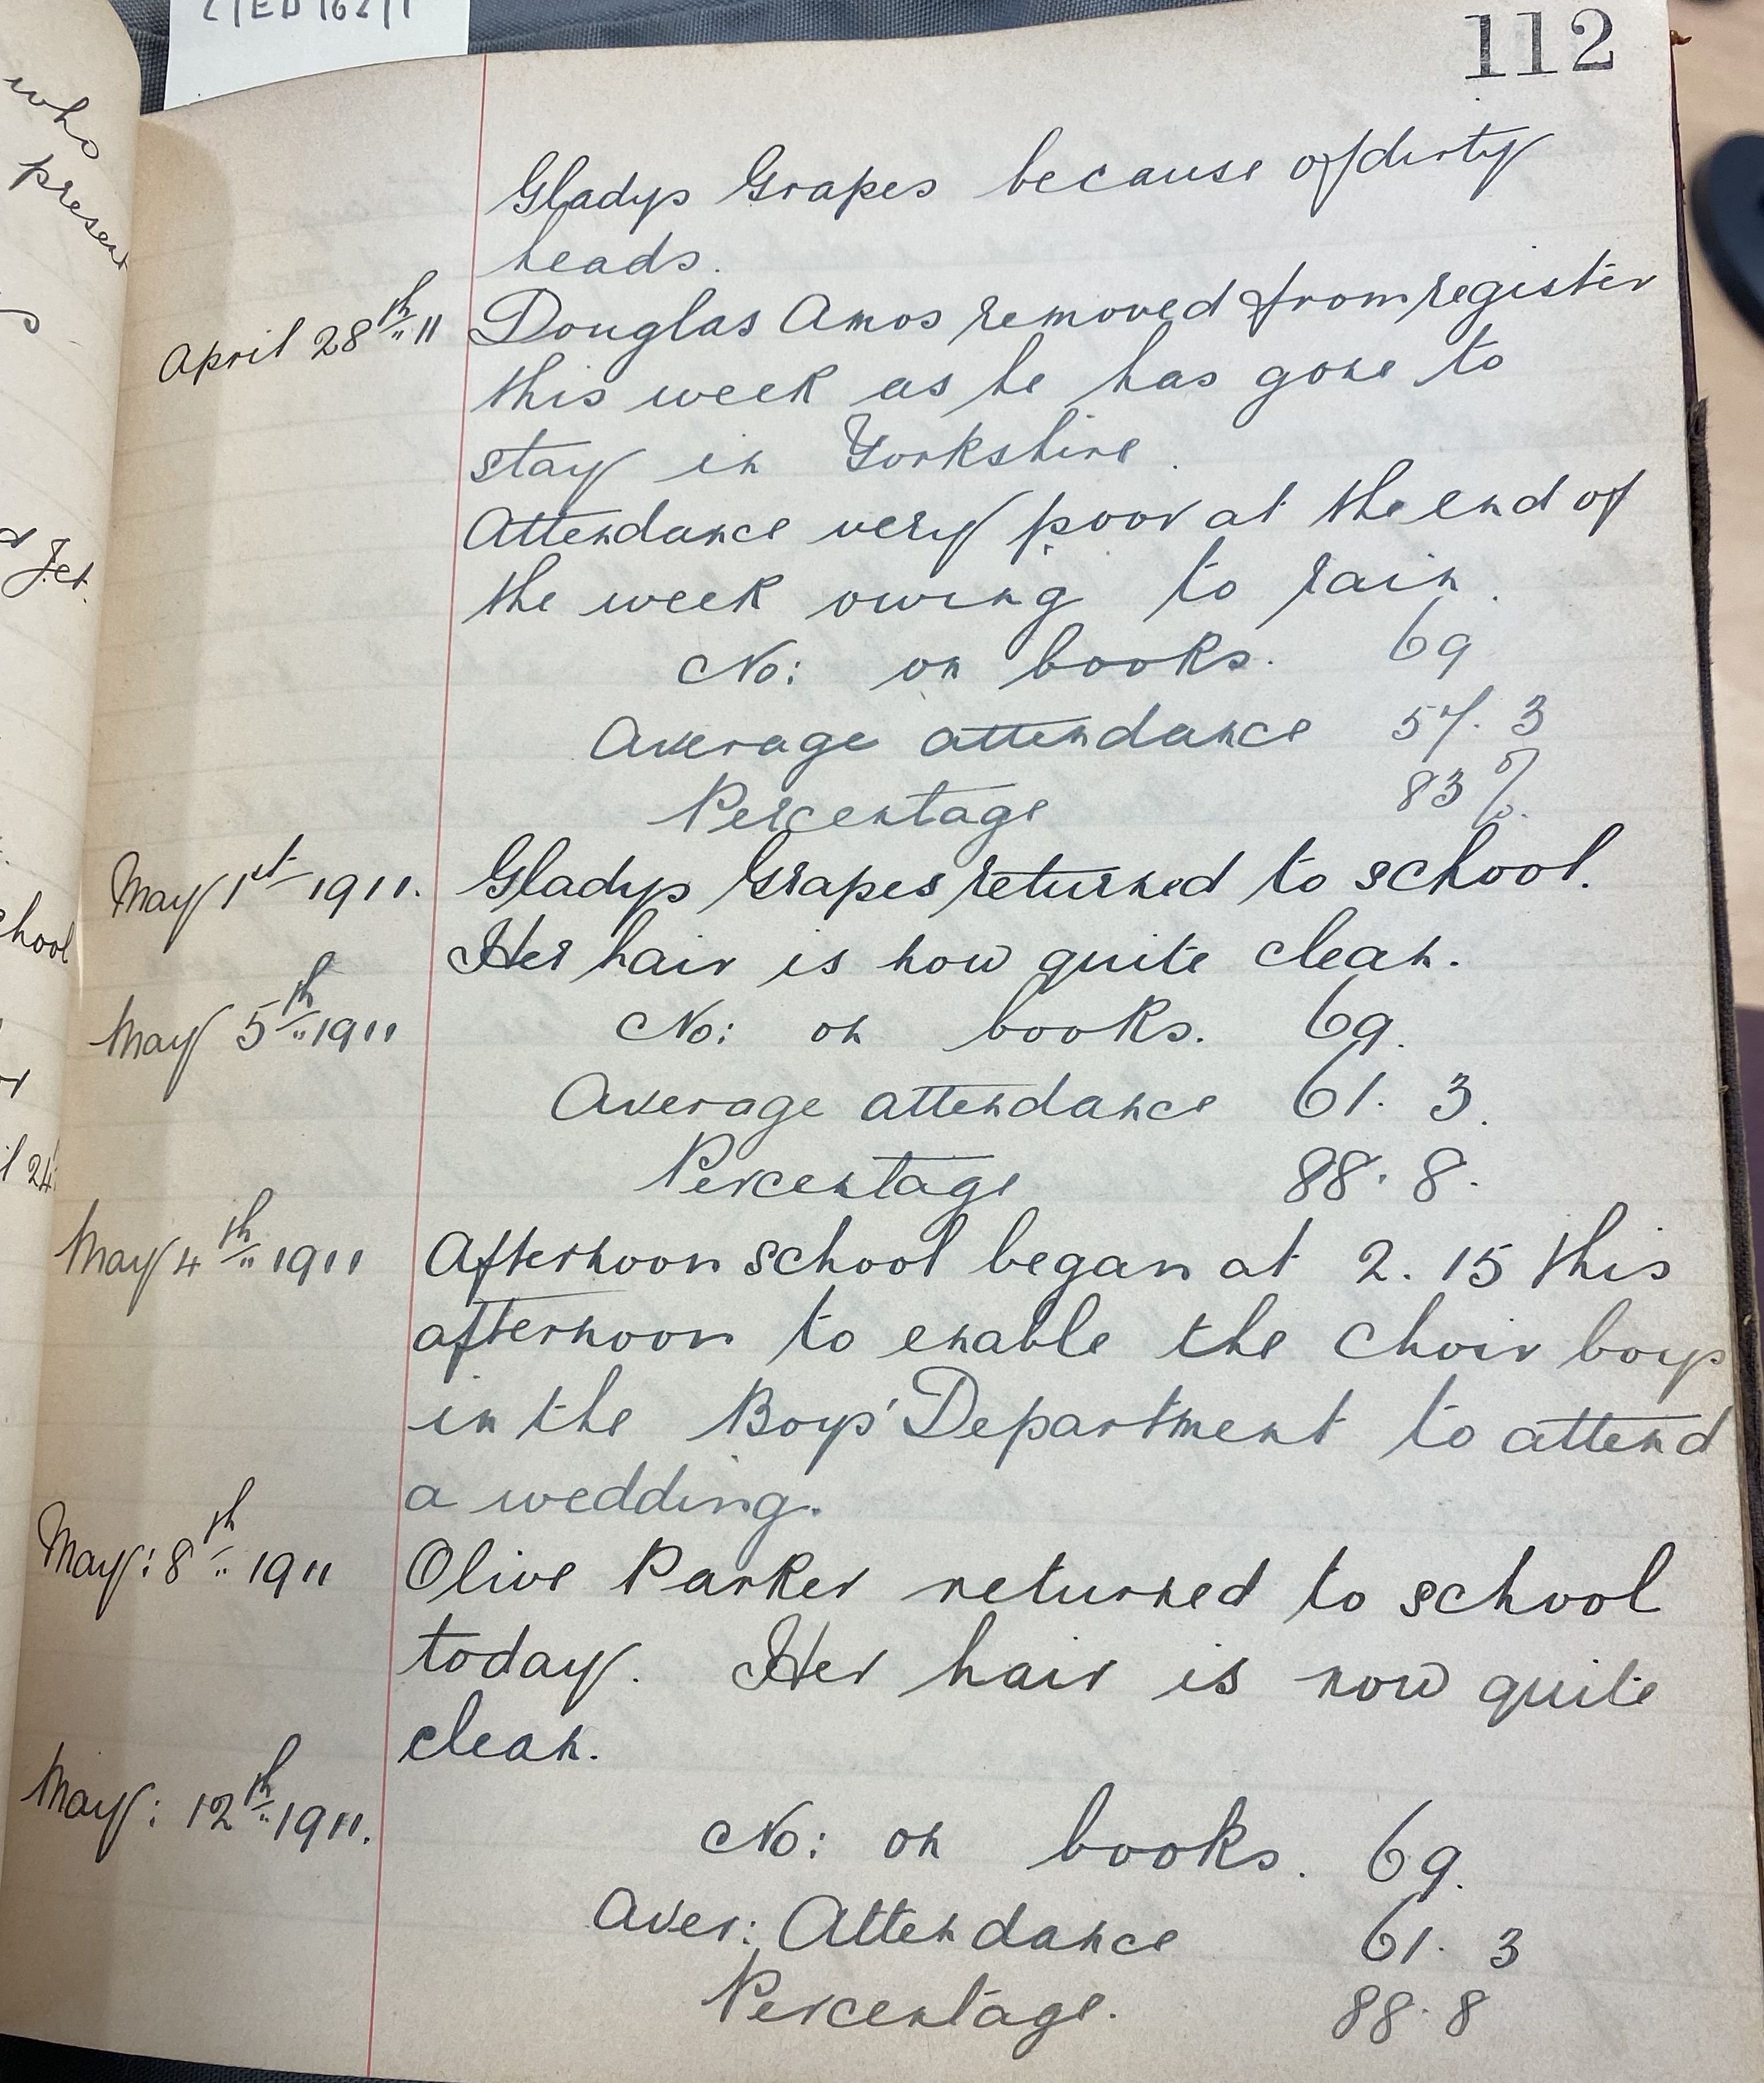 C/ED 162/1
112
who
present
Gladys Grapes because of dirty
heads.
April 28th 11 Douglas Amos removed from register
this week as he has gone to
stay in Yorkshire.
Attendance very poor at the end of
the week owing to rain.
No: on books. 69
Average attendance 57. 3
Percentage 83 %
May 1st 1911. Gladys Grapes returned to school.
Her hair is now quite clean.
May 5th 1911 No: on books. 69.
Average attendance 61. 3.
Percentage 88. 8.
May 4th 1911 Afternoon school began at 2. 15 this
afternoon to enable the choir boys
in the Boys' Department to attend
a wedding.
May: 8th 1911 Olive Parker returned to school
today. Her hair is now quite
clean.
May: 12th 1911.
No: on books. 69.
Aver: Attendance 61. 3
Percentage. 88. 8